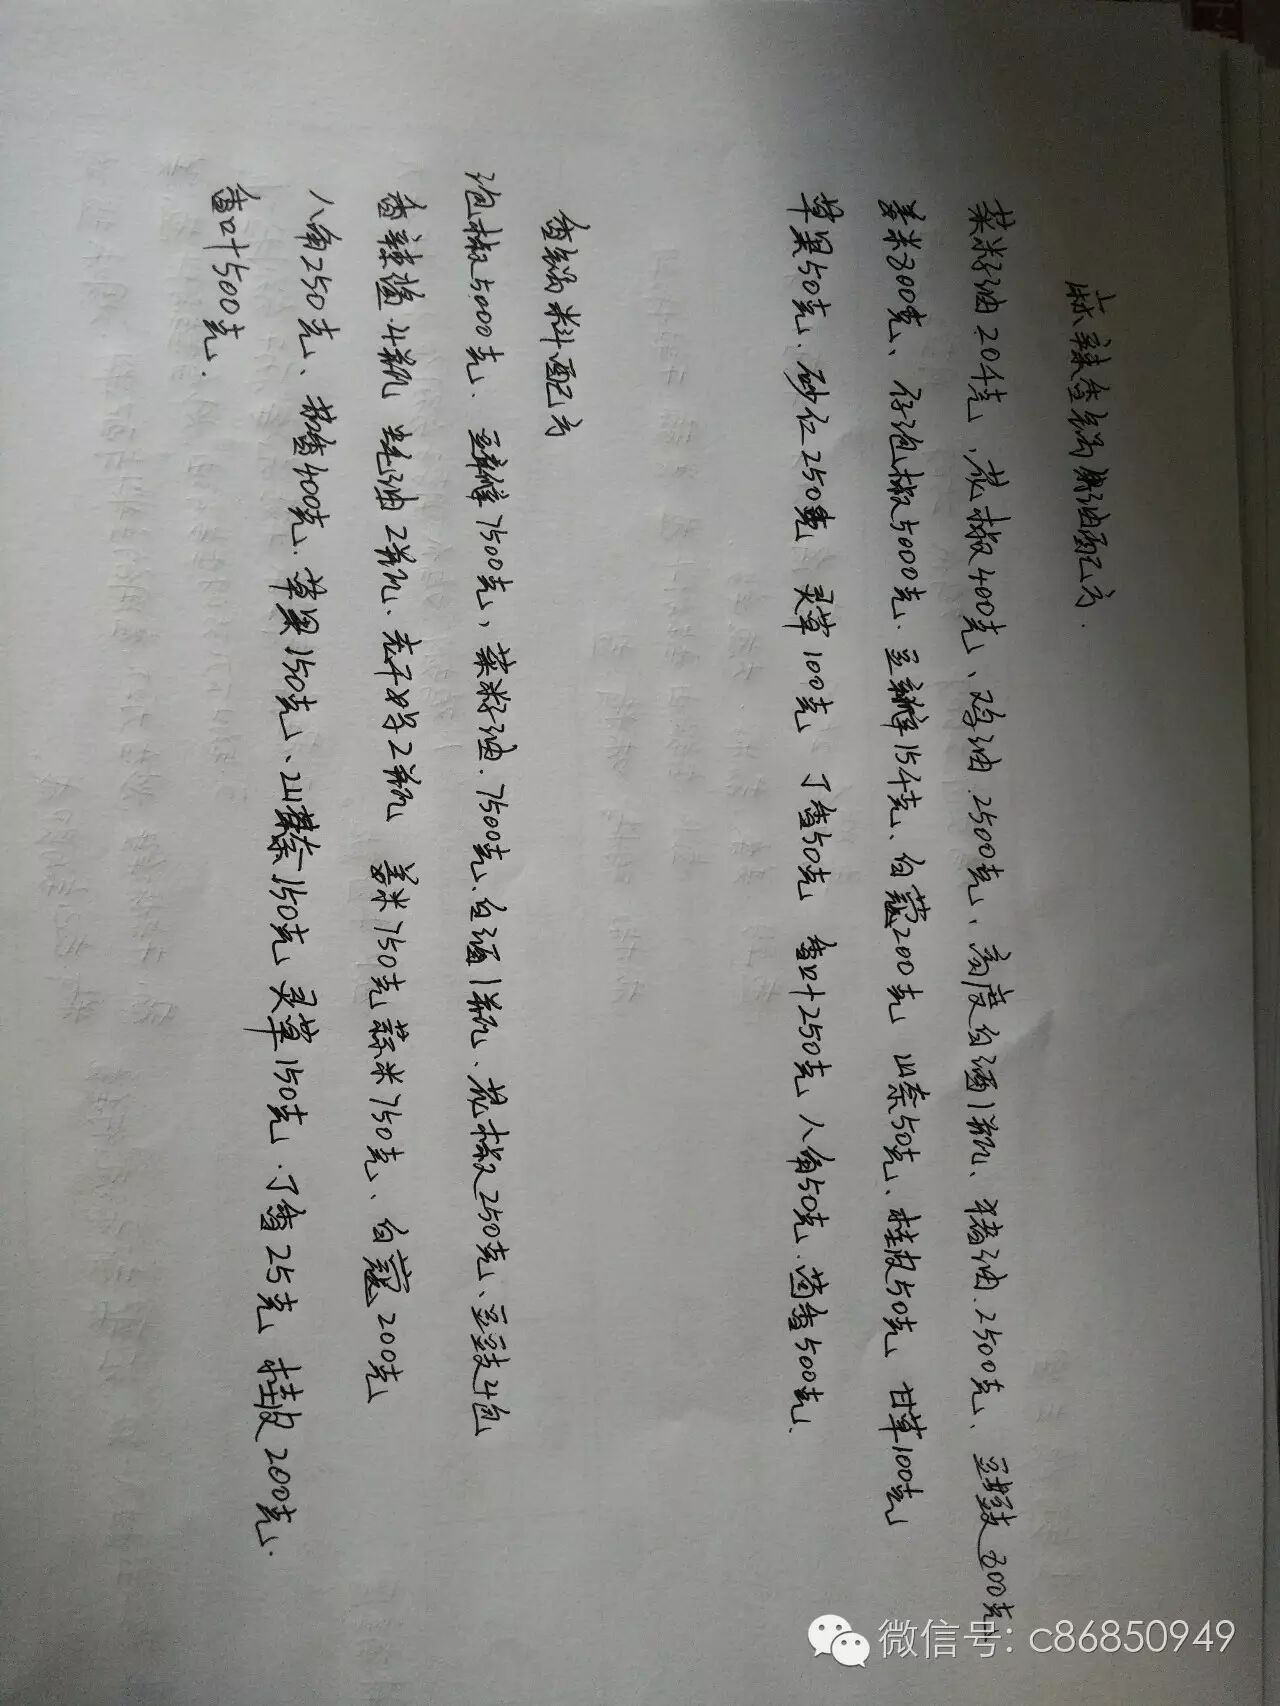 麻辣香锅熬油配方.
菜籽油20千克、花椒400克、鸡油.2500克、高度白酒1瓶、猪油.2500克、豆豉800克
姜米800克、仔泡椒5000克.豆瓣15千克、白蔻200克 山奈50克、桂皮50克 甘草100克
草果50克.砂仁250克 灵草100克 丁香50克 香叶250克 八角50克.茴香500克.
香锅料配方
泡椒5000克.豆瓣7500克,菜籽油.7500克.白酒1瓶、花椒250克、豆豉4包
香辣酱.4瓶 蚝油2瓶、老干妈2瓶 姜米750克 蒜米750克、白蔻200克
八角250克、茴香400克.草果150克、山奈150克 灵草150克.丁香25克 桂皮200克.
香叶500克.
微信号: c86850949